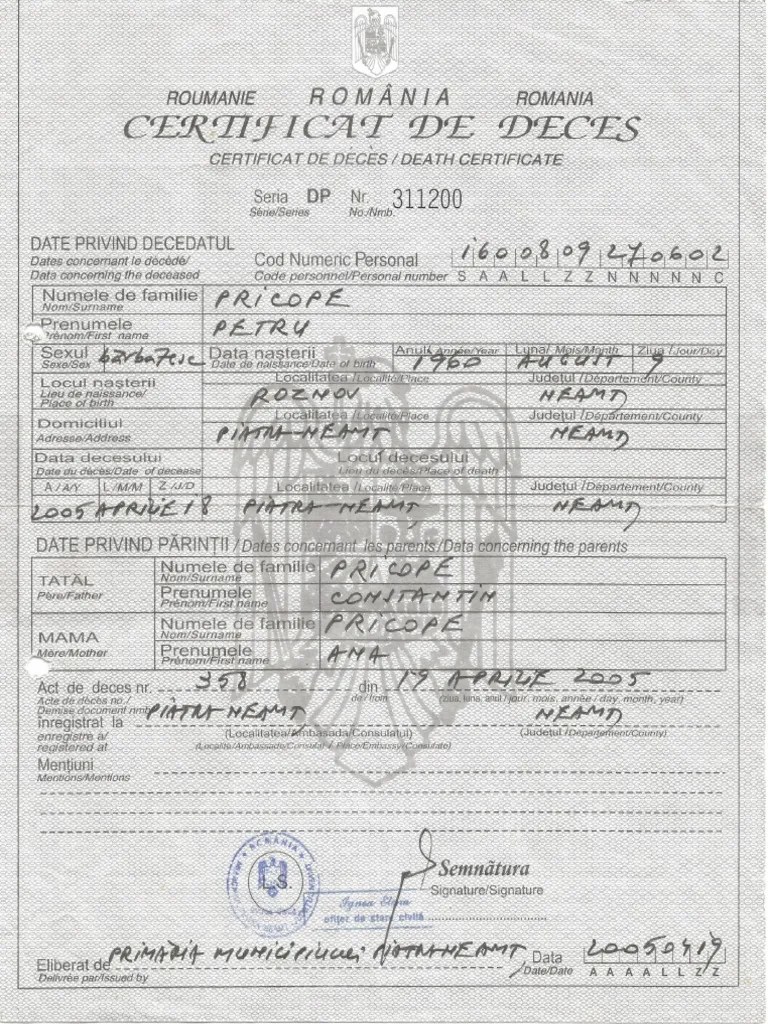 ROUMANIE ROMÂNIA ROMANIA
CERTIFICAT DE DECES
CERTIFICAT DE DÉCÈS / DEATH CERTIFICATE
Seria DP Nr. 311200
Série/Series No./Nmb.
DATE PRIVIND DECEDATUL
Dates concernant le décédé/
Data concerning the deceased
Cod Numeric Personal 1600809270602
Code personnel/Personal number S A A L L Z Z N N N N N C
Numele de familie PRICOPE
Nom/Surname
Prenumele PETRU
Prénom/First name
Sexul bărbătesc Data nașterii Anul/Année/Year Luna/Mois/Month Ziua/Jour/Day
Sexe/Sex Date de naissance/Date of birth 1960 AUGUST 9
Locul nașterii Localitatea/Localité/Place Județul/Département/County
Lieu de naissance/
Place of birth ROZNOV NEAMȚ
Domiciliul Localitatea/Localité/Place Județul/Département/County
Adresse/Address PIATRA-NEAMȚ NEAMȚ
Data decesului Locul decesului
Date du décès/Date of decease Lieu du décès/Place of death
A/A/Y L/M/M Z/J/D Localitatea/Localité/Place Județul/Département/County
2005 APRILIE 18 PIATRA-NEAMȚ NEAMȚ
DATE PRIVIND PĂRINȚII/Dates concernant les parents/Data concerning the parents
TATĂL Numele de familie PRICOPE
Père/Father Nom/Surname
Prenumele CONSTANTIN
Prénom/First name
MAMA Numele de familie PRICOPE
Mère/Mother Nom/Surname
Prenumele ANA
Prénom/First name
Act de deces nr. 358 din 19 APRILIE 2005
Acte de décès no./ de/from (ziua, luna, anul/jour, mois, année/day, month, year)
Demise document nmb.
înregistrat la PIATRA NEAMȚ NEAMȚ
enregistré à/ (Localitatea/Ambasada/Consulatul) (Județul/Département/County)
registered at (Localité/Ambassade/Consulat/Place/Embassy/Consulate)
Mențiuni
Mentions/Mentions
ROMÂNIA
L.S.
Semnătura
Signature/Signature
ofițer de stare civilă
Eliberat de PRIMĂRIA MUNICIPIULUI PIATRA NEAMȚ Data 20050419
Delivrée par/Issued by Date/Date A A A A L L Z Z